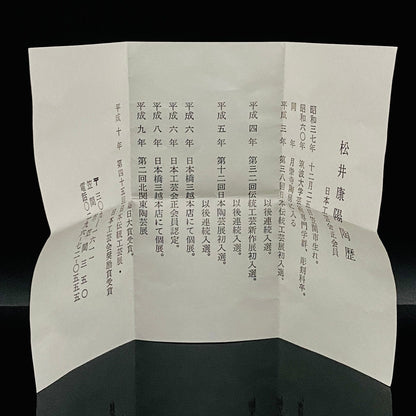 松井康陽 陶歴
日本工芸会正会員
昭和三七年 十二月二 笠間市生れ。
昭和六〇年 筑波大学芸術専門学群、彫刻科卒。
同 年 月崇寺陶房に入る
平成三年 第三八回日本伝統工芸展初入選、
以後連続入選。
平成四年 第三二回伝統工芸新作展初入選。
以後連続入選。
平成五年 第十二回日本陶芸展初入選。
以後連続入選。
平成六年 日本橋三越本店にて個展。
平成六年 日本工芸会正会員認定。
平成八年 日本橋三越本店にて個展。
平成九年 第二回北関東陶芸展。
日大賞受賞。
平成十年 第四十五回日本伝統工芸展・
日本工芸会奨励賞受賞
〒三〇
笠間市 間三五〇
電話〇二 六 七二・〇五五五